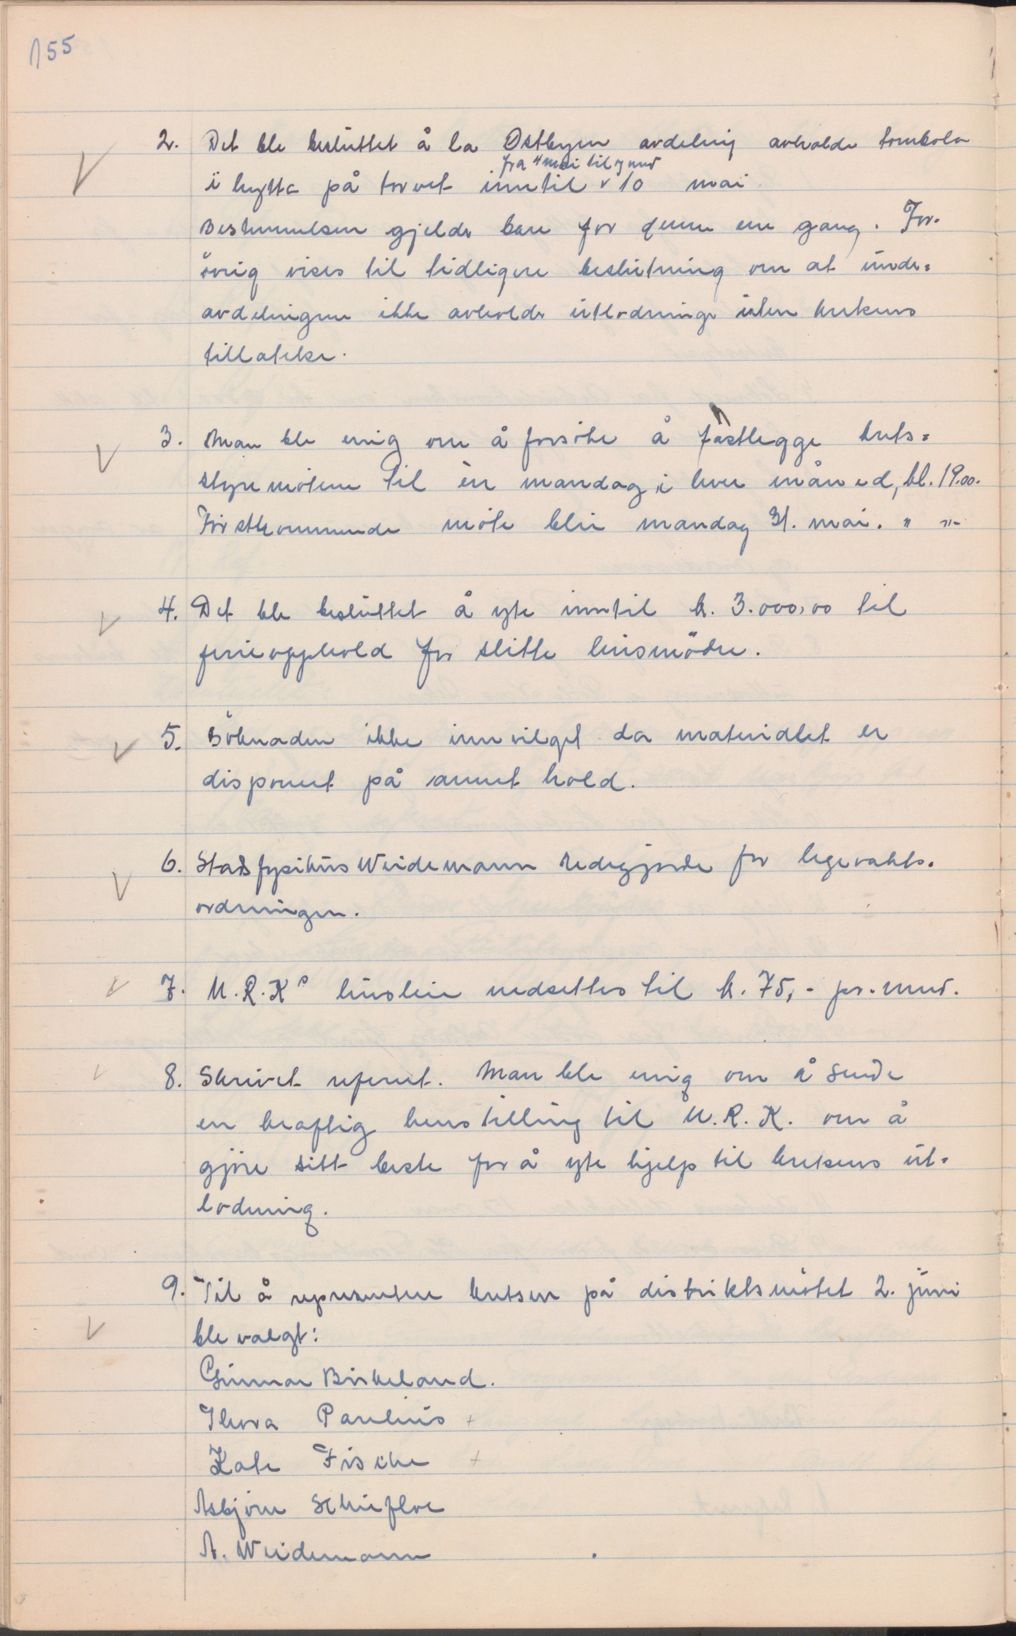 155
2. Det ble besluttet å la Østbyen avdeling avholde tombola
fra 4 mai til og med
i hytta på torvet inntil v 10 mai
Bestemmelsen gjelder bare for denne ene gang. For-
øvrig vises til tidligere beslutning om at under=
avdelingene ikke avholder utlodninger uten kretsens
tillatelse.
3. Man ble enig om å forsöke å fastlegge krets=
styremötene til èn mandag i hver måned, kl. 19.00.
Förstkommende möte blir mandag 31. mai. " "-
4. Det ble besluttet å yte inntil k. 3.000,00 til
ferieopphold for slitte husmödre.
5. Söknaden ikke innvilget da materialet er
disponert på annet hold.
6. Stadsfysikus Weidemann redegjorde for legevakts-
ordningen.
7. U.R.K.s husleie nedsettes til k. 75,- pr. mnd.
8. Skrivet referert. Man ble enig om å sende
en kraftig henstilling til U.R.K. om å
gjöre sitt beste for å yte hjelp til kretsens ut-
lodning.
9. Til å representere kretsen på distriktsmötet 2. juni
ble valgt:
Gunnar Birkeland.
Thora Paulius +
Kate Fischer +
Asbjörn Schiefloe
A. Weidemann